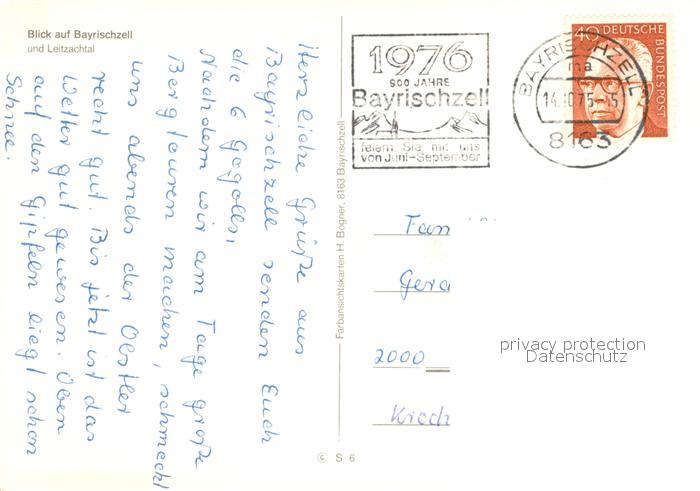 Blick auf Bayrischzell
und Leitzachtal
Herzliche Grüße aus
Bayrischzell senden Euch
die 6 Gogolls,
Nachdem wir am Tage große
Bergtouren machen, schmeckt
uns abends der Obstler
recht gut. Bis jetzt ist das
Wetter gut gewesen. Oben
auf den Gipfeln liegt schon
Schnee.
Farbansichtskarten H. Bogner, 8163 Bayrischzell
© S 6
1976
900 JAHRE
Bayrischzell
feiern Sie mit uns
von Juni-September
BAYRISCHZELL
ma
8163
40 DEUTSCHE
BUNDESPOST
Fam
Gera
2000
privacy protection
Datenschutz